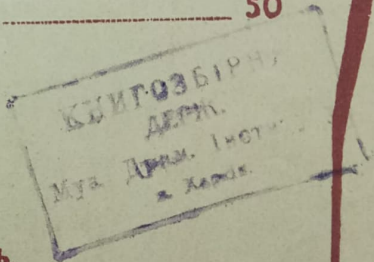 50
КНИГОЗБІРН
ДЕРЖ.
Муз. Драм. Інст
м. Харків.